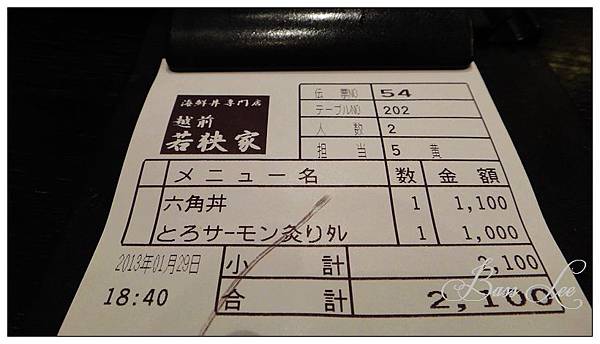 海鮮丼専門店
越前
若狭家
伝票NO 54
テーブルNO 202
人数 2
担当 5 黄
メニュー名 数 金額
六角丼 1 1,100
とろサーモン炙りタレ 1 1,000
2013年01月29日 小計 2,100
18:40 合計 2,100
Bass Lee